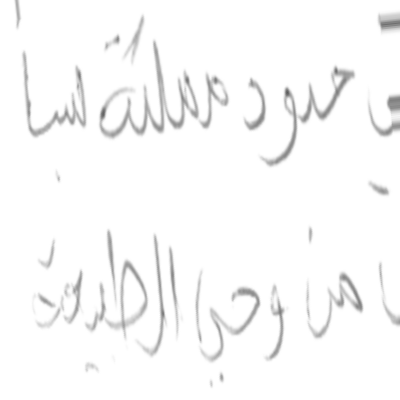 حدود مملكة سبأ
من وحي الطبيعة